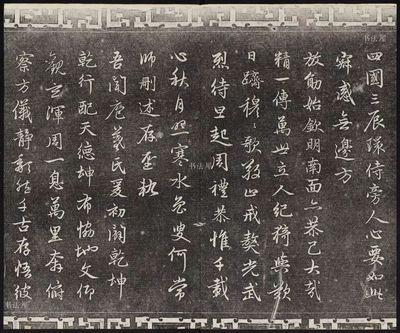 四國三辰環侍旁人心要如此
寂感无邊方
放勛始欽明南面亦恭己大哉
精一傳萬世立人紀猗歟歎
日躋穆〻歌敬止戒獒光武
烈待旦起周禮恭惟千載
心秋月照寒水魯叟何常
師刪述存聖軌
吾聞庖羲氏爰初闢乾坤
乾行配天德坤布協地文仰
觀玄渾周一息萬里奔俯
察方儀靜頹然千古存悟彼
书法屋
书法屋
书法屋